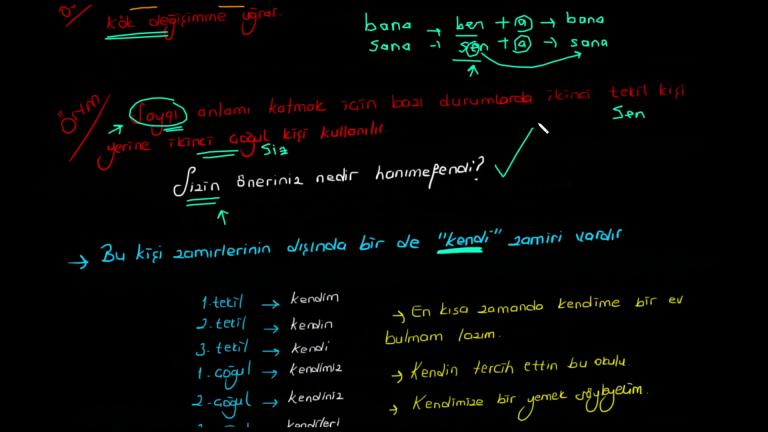 kök değişimine uğrar.
bana → ben + a → bana
sana → sen + a → sana
Saygı anlamı katmak için bazı durumlarda ikinci tekil kişi
sen
yerine ikinci çoğul kişi kullanılır
siz
Sizin öneriniz nedir hanımefendi?
→ Bu kişi zamirlerinin dışında bir de "kendi" zamiri vardır.
1. tekil → kendim
2. tekil → kendin
3. tekil → kendi
1. çoğul → kendimiz
2. çoğul → kendiniz
kendileri
→ En kısa zamanda kendime bir ev
bulmam lazım.
→ Kendin tercih ettin bu okulu.
→ Kendimize bir yemek söyleyelim.